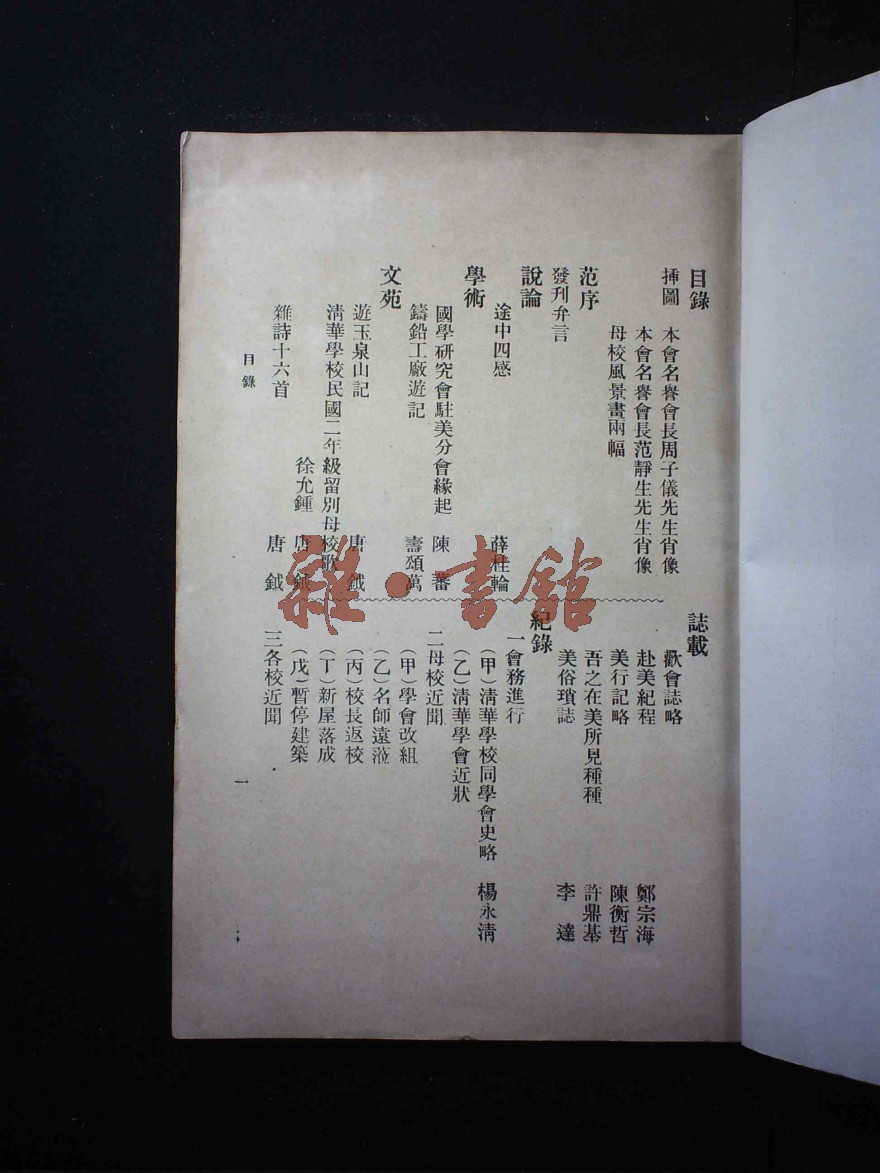 目錄
插圖　本會名譽會長周子儀先生肖像
本會名譽會長范靜生先生肖像
母校風景畫兩幅
范序
發刋弁言
說論
途中四感　薛桂輪
學術
國學研究會駐美分會緣起　陳蕃
鑄鉛工廠遊記　壽頌萬
文苑
遊玉泉山記　唐鉞
淸華學校民國二年級留別母校歌
徐允鍾　唐鉞
雜詩十六首　唐鉞
誌載
歡會誌略
赴美紀程　鄭宗海
美行記略　陳衡哲
吾之在美所見種種　許鼎基
美俗瑣誌　李達
紀錄
一會務進行
（甲）淸華學校同學會史略　楊永淸
（乙）淸華學會近狀
二母校近聞
（甲）學會改組
（乙）名師遠蒞
（丙）校長返校
（丁）新屋落成
（戊）暫停建築
三各校近聞
目錄
一
雜·書館